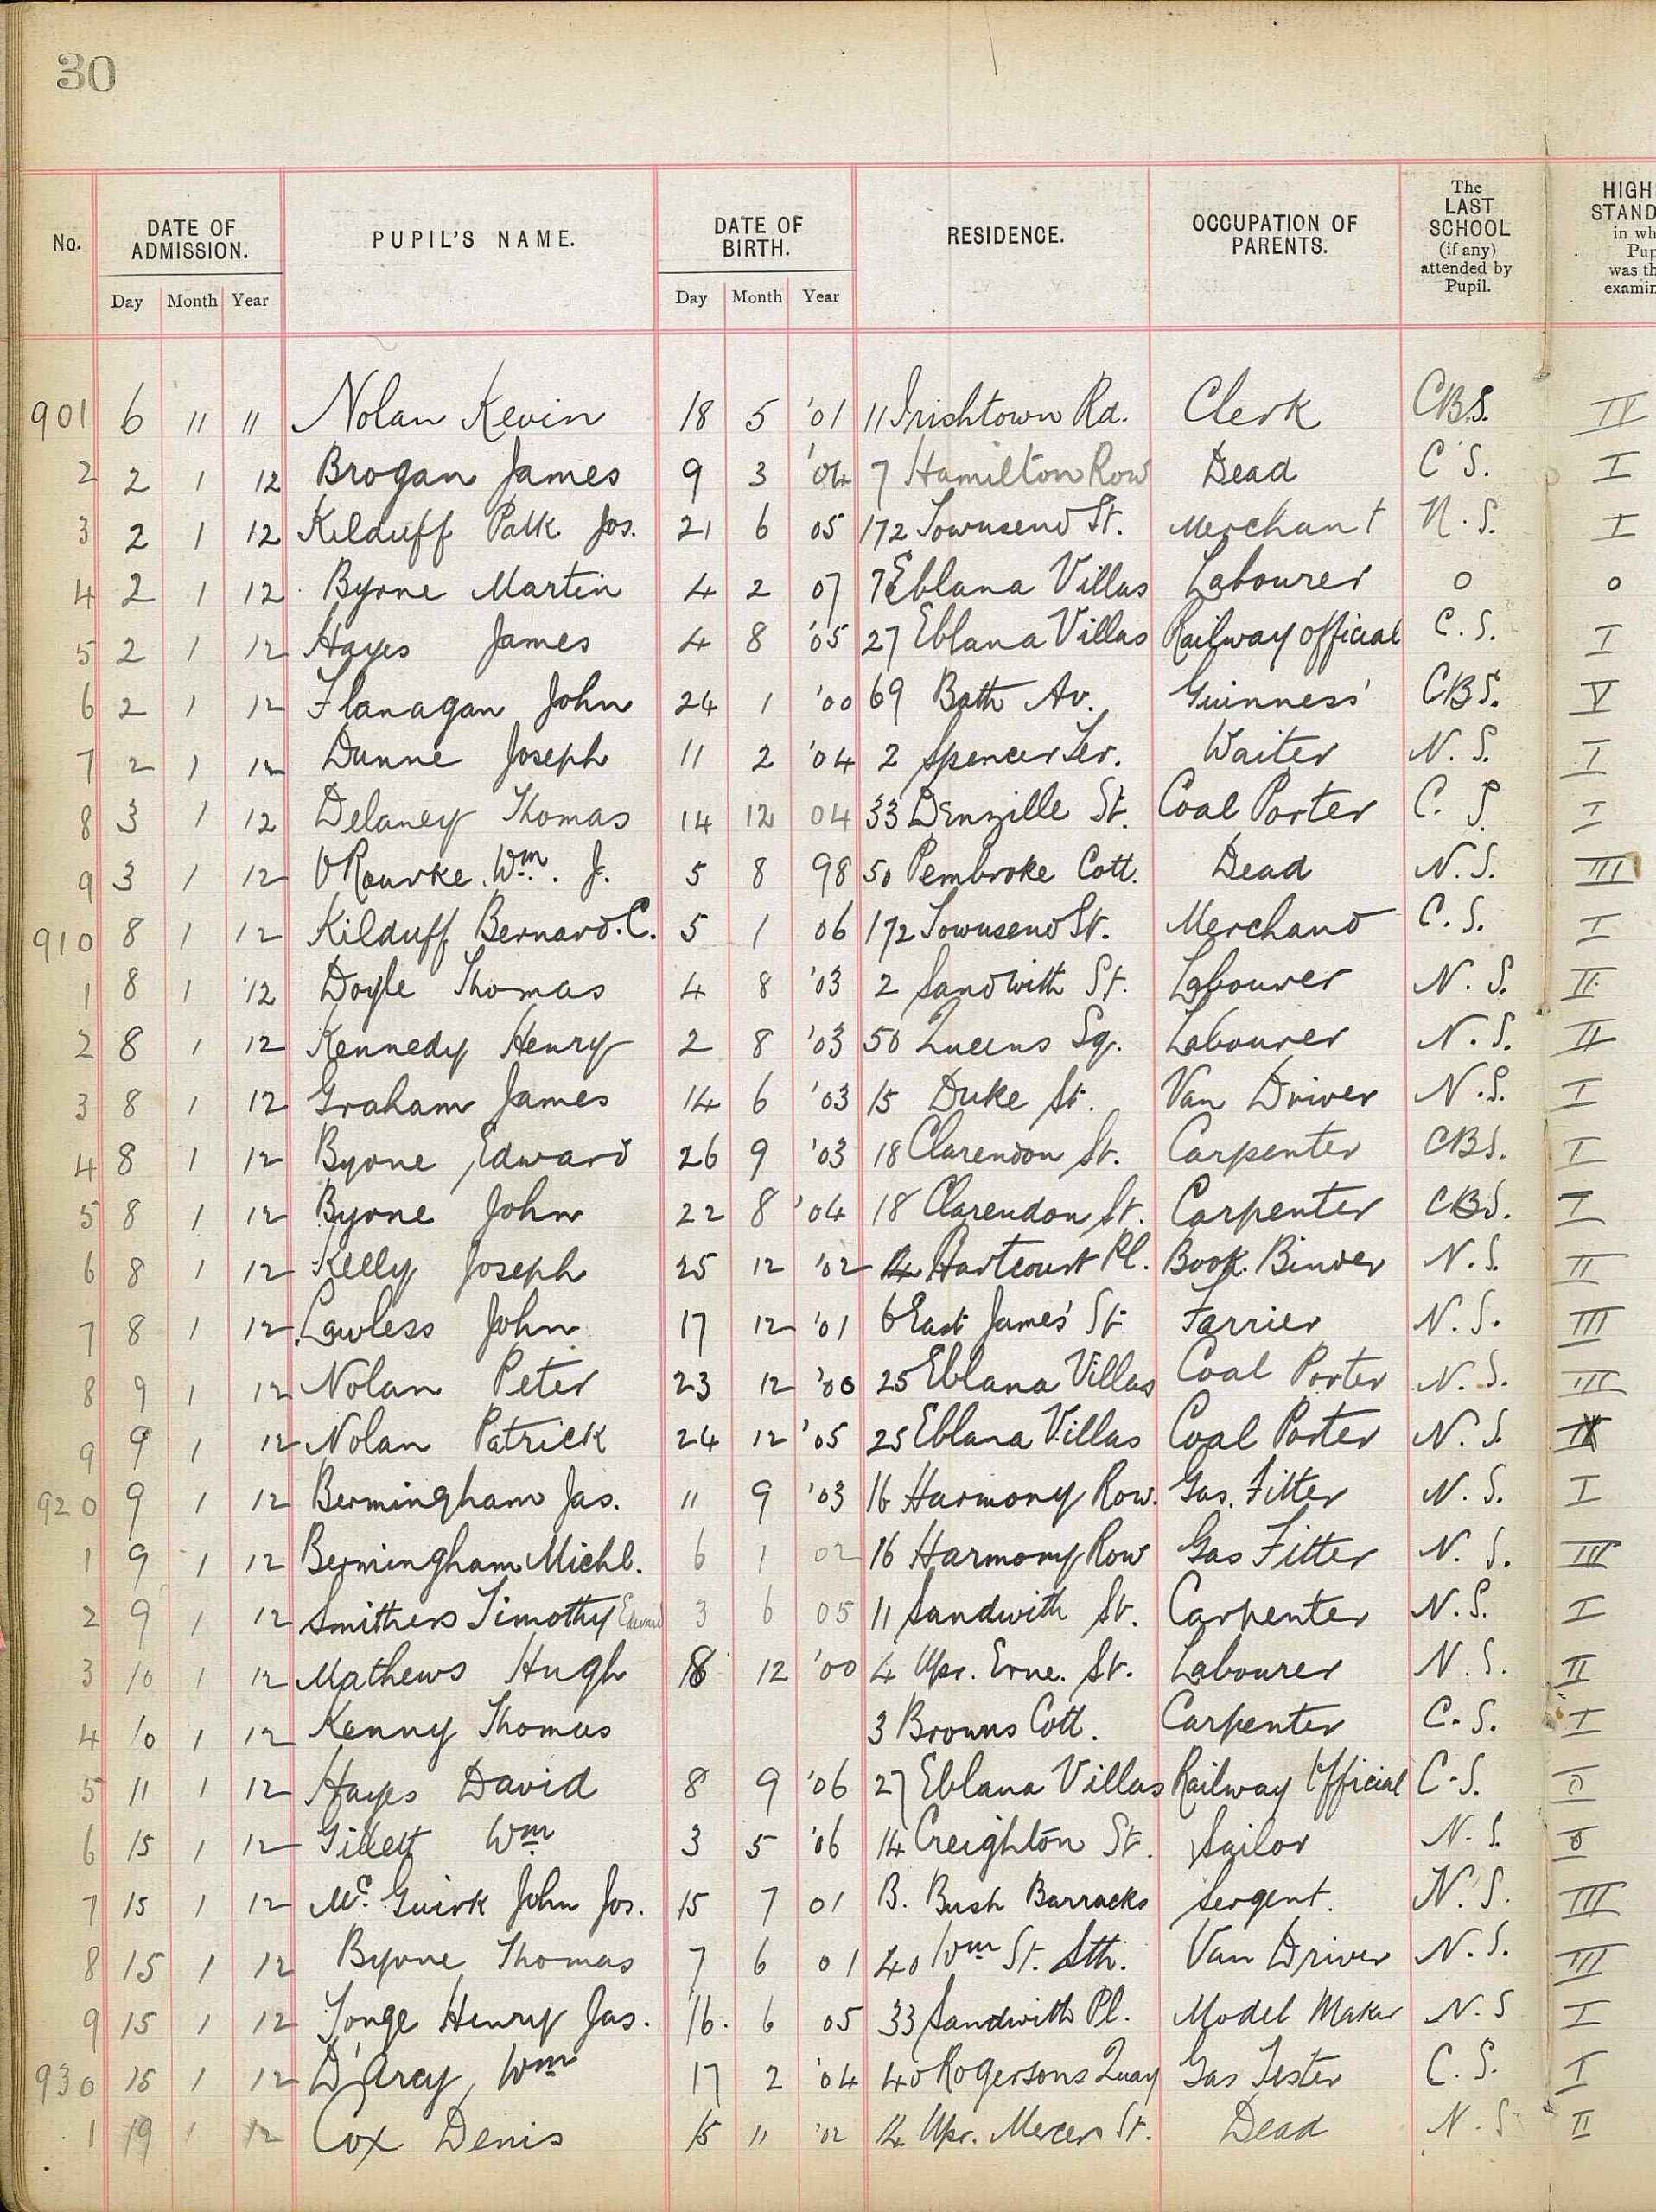 30
No. DATE OF ADMISSION. PUPIL'S NAME. DATE OF BIRTH. RESIDENCE. OCCUPATION OF PARENTS. The LAST SCHOOL (if any) attended by Pupil. HIGH STAND in wh Pup was th examin
Day Month Year Day Month Year
901 6 11 11 Nolan Kevin 18 5 '01 11 Irishtown Rd. Clerk CBS. IV
2 2 1 12 Brogan James 9 3 '04 7 Hamilton Row Dead C S. I
3 2 1 12 Kilduff Patk. Jos. 21 6 05 172 Townsend St. Merchant N. S. I
4 2 1 12 Byrne Martin 4 2 07 Eblana Villas Labourer 0 0
5 2 1 12 Hayes James 4 8 '05 27 Eblana Villas Railway official C. S. I
6 2 1 12 Flanagan John 24 1 '00 69 Bath Av. Guinness' CBS. V
7 2 1 12 Dunne Joseph 11 2 '04 2 Spencer Ter. Waiter N. S. I
8 3 1 12 Delaney Thomas 14 12 04 33 Denzille St. Coal Porter C. S. I
9 3 1 12 O'Rourke. Wm. J. 5 8 98 50 Pembroke Cott. Dead N. S. III
910 8 1 12 Kilduff Bernard. C. 5 1 06 172 Townsend St. Merchand C. S. I
1 8 1 '12 Doyle Thomas 4 8 '03 2 Sandwith St. Labourer N. S. II
2 8 1 12 Kennedy Henry 2 8 '03 50 Queens Sq. Labourer N. S. II
3 8 1 12 Graham James 14 6 '03 15 Duke St. Van Driver N. S. I
4 8 1 12 Byrne Edward 26 9 '03 18 Clarendon St. Carpenter CBS. I
5 8 1 12 Byrne John 22 8 '04 18 Clarendon St. Carpenter CBS. I
6 8 1 12 Kelly Joseph 25 12 '02 14 Hartcourt Pl. Book Binder N. S. II
7 8 1 12 Lawless John 17 12 '01 6 East James' St Farrier N. S. III
8 9 1 12 Nolan Peter 23 12 '00 25 Eblana Villas Coal Porter N. S. III
9 9 1 12 Nolan Patrick 24 12 '05 25 Eblana Villas Coal Porter N. S.
920 9 1 12 Bermingham Jas. 11 9 '03 16 Harmony Row. Gas. Fitter N. S. I
1 9 1 12 Bermingham Michl. 6 1 02 16 Harmony Row Gas Fitter N. S. III
2 9 1 12 Smithers Timothy Edward 3 6 05 11 Sandwith St. Carpenter N. S. I
3 10 1 12 Mathews Hugh 12 '00 4 Upr. Erne. St. Labourer N. S. II
4 10 1 12 Kenny Thomas 3 Browns Cott. Carpenter C. S. I
5 11 1 12 Hayes David 8 9 '06 27 Eblana Villas Railway Official C. S. 0
6 15 1 12 Gillett Wm 3 5 '06 14 Creighton St. Sailor N. S. 0
7 15 1 12 Mc. Guirk John Jos. 15 7 01 B. Bush Barracks Sergent. N. S. III
8 15 1 12 Byrne Thomas 7 6 01 40 Wm St. Sth. Van Driver N. S. III
9 15 1 12 Tonge Henry Jas. 16. 6 05 33 Sandwith Pl. Model Maker N. S I
930 15 1 12 D'Arcy, Wm 17 2 '04 40 Rogersons Quay Gas Tester C. S. I
1 19 1 12 Cox Denis 15 11 '02 14 Upr. Mercer St. Dead N. S II